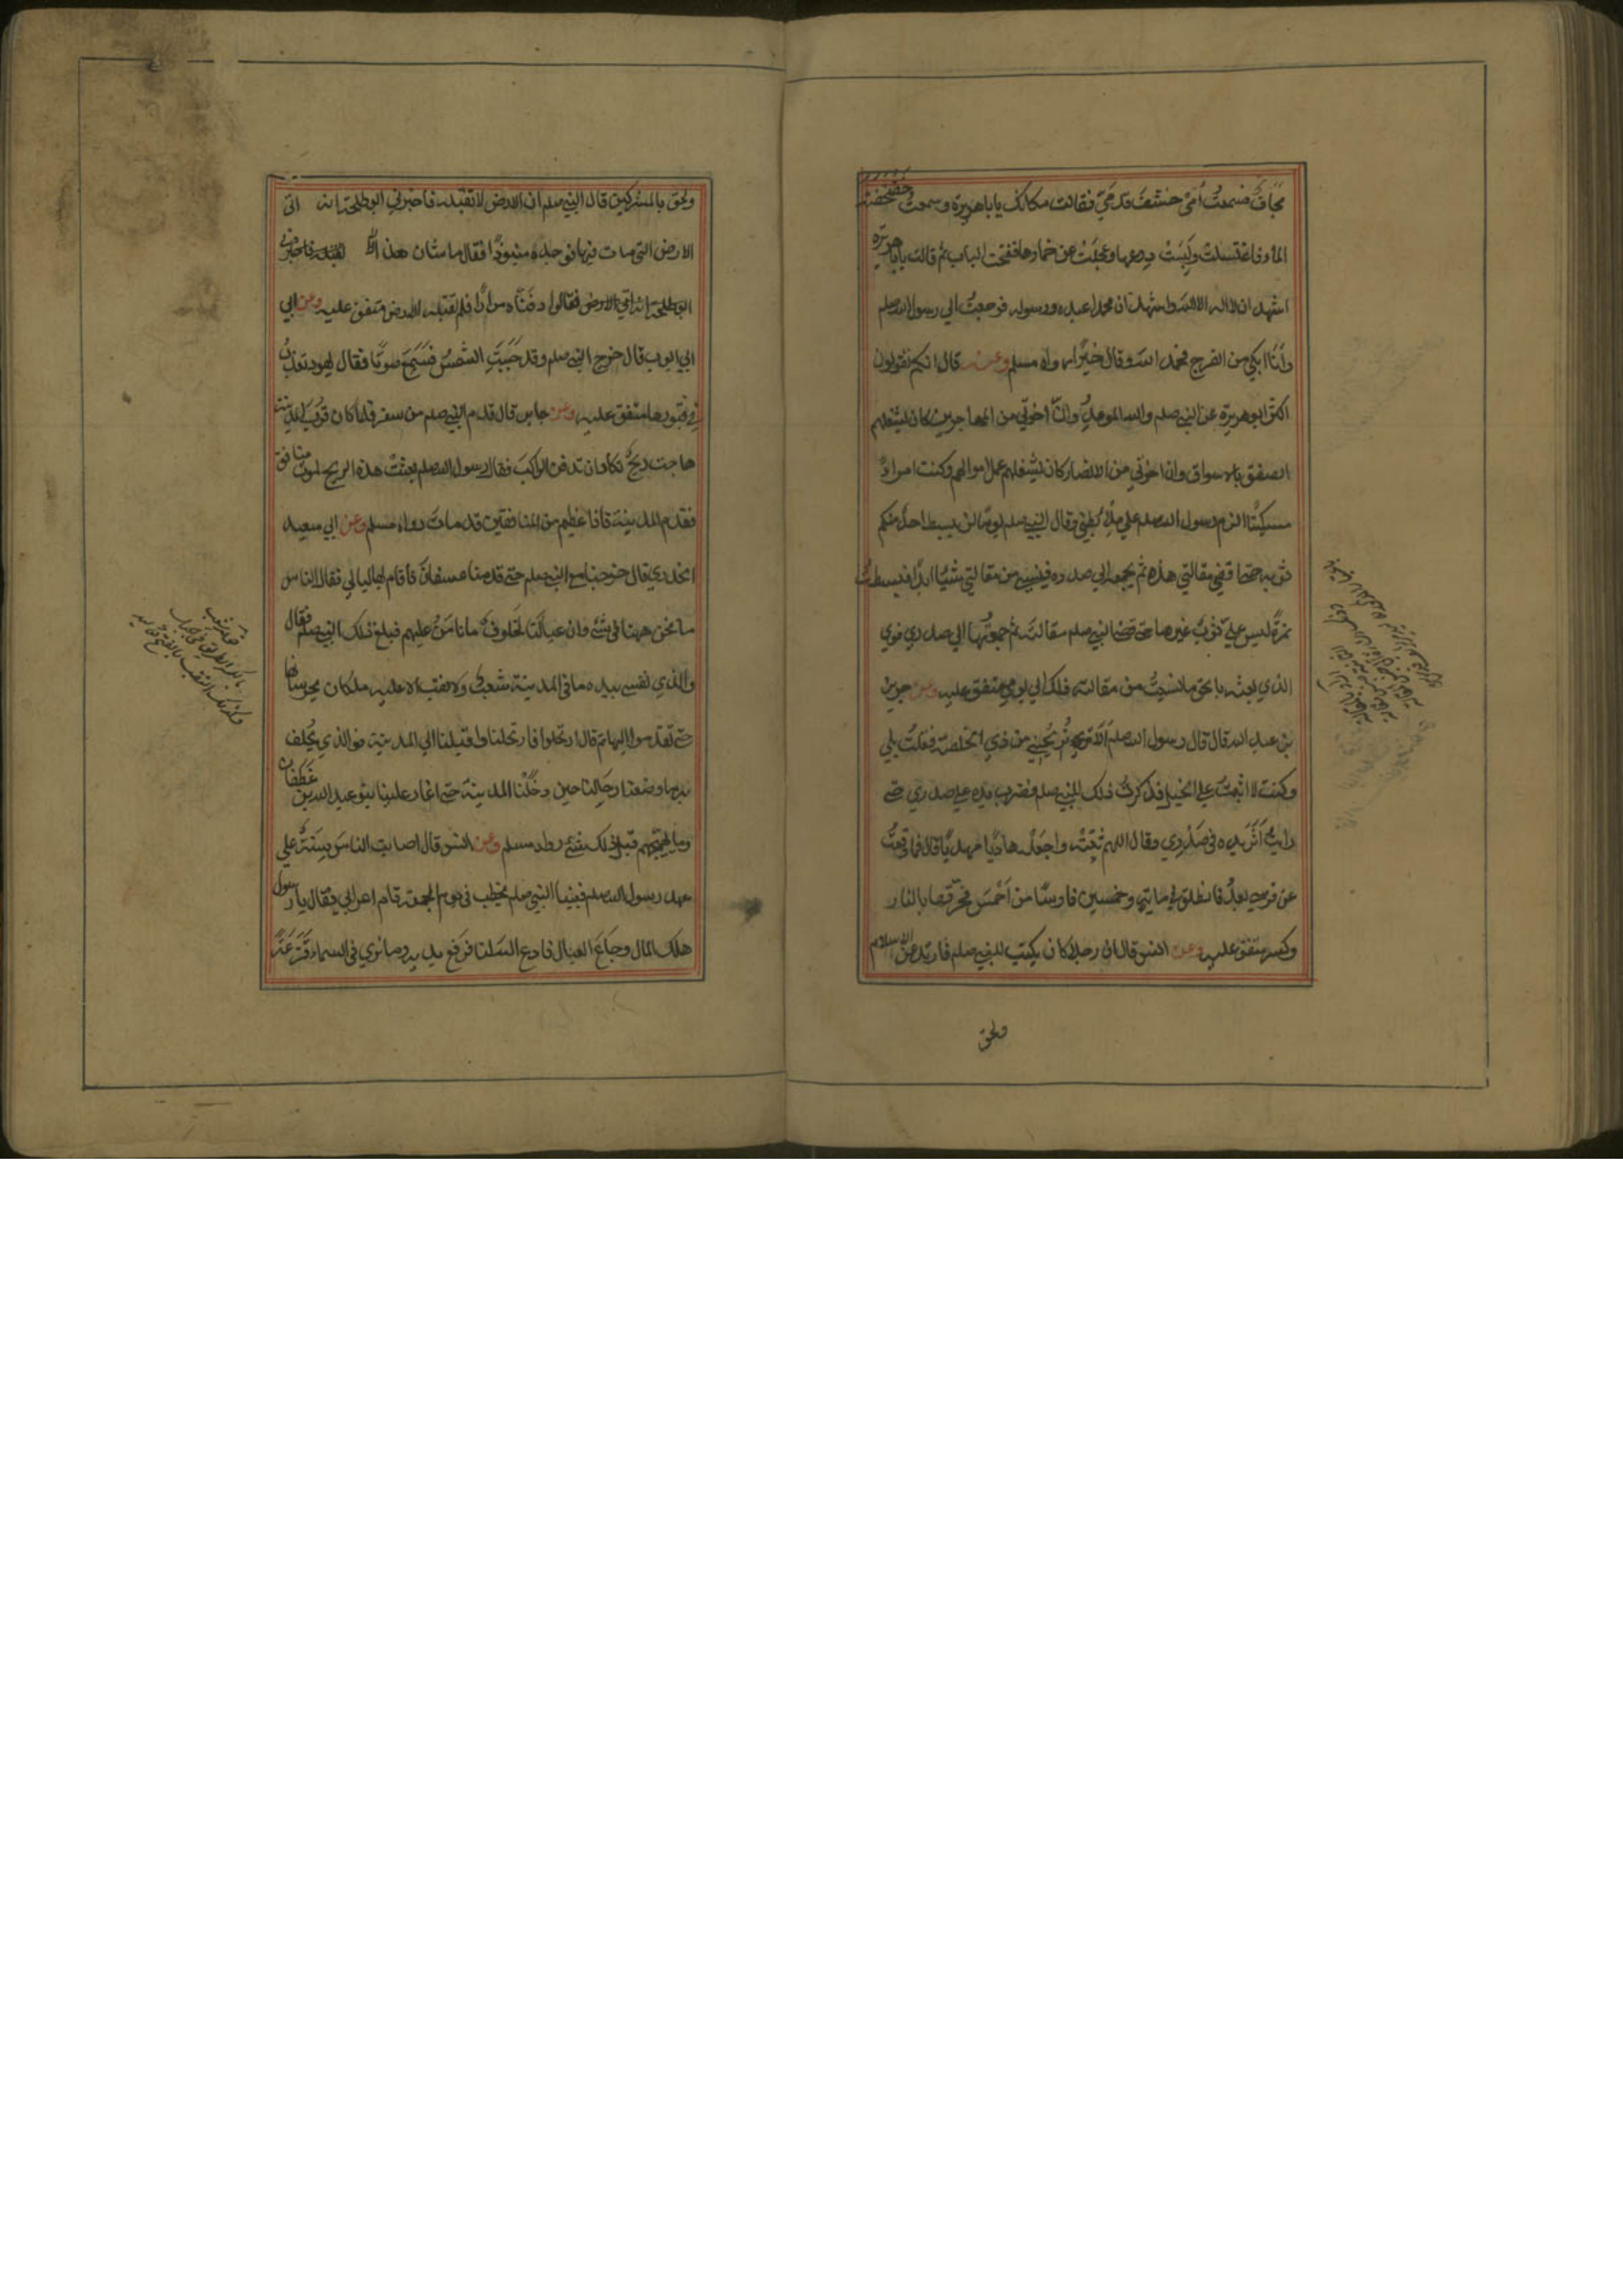 مجاف فسمعت أمي خشف قدمي فقالت مكانك يا ابا هريرة وسمعت خضخضة
الماء فاغتسلت ولبست درعها وعجلت عن خمارها ففتحت الباب ثم قالت يا ابا هريرة
اشهد ان لا اله الا الله واشهد ان محمدا عبده ورسوله فرجعت الي رسول الله صلعم
وأنا ابكي من الفرح فحمد الله وقال خيرا رواه مسلم وعنه قال انكم تقولون
اكثر ابو هريرة عن النبي صلعم والله الموعد وانّ اخوتي من المهاجرين كان يشغلهم
الصفق بالاسواق وان اخوتي من الانصار كان يشغلهم عمل اموالهم وكنت امرأ
مسكينا الزم رسول الله صلعم علي ملإ بطني وقال النبي صلعم يوما لن يبسط احد منكم
ثوبه حتى اقضي مقالتي هذه ثم يجمعه الي صدره فينسي من مقالتي شيئا ابدا فبسطت
نمرة ليس علي ثوب غيرها حتى قضى النبي صلعم مقالته ثم جمعتها الي صدري فوالذي
الذي بعثه بالحق ما نسيت من مقالته ذلك الي يومي متفق عليه وعن جرير
بن عبد الله قال قال رسول الله صلعم ألا تريحني من ذي الخلصة فقلت بلي
وكنت لا اثبت علي الخيل فذكرت ذلك للنبي صلعم فضرب يده علي صدري حتى
رايت أثر يده في صدري وقال اللهم ثبته واجعله هاديا مهديا قال فما وقعت
عن فرسي بعد فانطلق في ماية وخمسين فارسا من أحمس فحرقها بالنار
وكسرها متفق عليه وعن انس قال ان رجلا كان يكتب للنبي صلعم فارتد عن الاسلام
ولحق
ولحق بالمشركين قال النبي صلعم ان الارض لا تقبله فاخبرني ابو طلحة انه اتى
الارض التي مات فيها فوجده منبوذا فقال ما شان هذا
فقالوا دفناه مرارا فلم تقبله الارض متفق عليه وعن ابي
ابي ايوب قال خرج النبي صلعم وقد وجبت الشمس فسمع صوتا فقال يهود تعذب
في قبورها متفق عليه وعن جابر قال قدم النبي صلعم من سفر فلما كان قرب المدينة
هاجت ريح تكاد ان تدفن الراكب فقال رسول الله صلعم بعثت هذه الريح لموت منافق
فقدم المدينة فاذا عظيم من المنافقين قد مات رواه مسلم وعن ابي سعيد
الخدري قال خرجنا مع النبي صلعم حتى قدمنا عسفان فأقام بها ليالي فقال الناس
ما نحن ههنا في شئ وان عيالنا لخلوف ما نامن عليهم فبلغ ذلك النبي صلعم فقال
والذي نفسي بيده ما في المدينة شعب ولا نقب الا عليه ملكان يحرسانها
حتى تقدموا اليها ثم قال ارتحلوا فارتحلنا واقبلنا الي المدينة فوالذي يحلف
به ما وضعنا رحالنا حين دخلنا المدينة حتى اغار علينا بنو عبد الله بن غطفان
وما يهيجهم قبل ذلك شئ رواه مسلم وعن انس قال اصابت الناس سنة علي
عهد رسول الله صلعم فبينا النبي صلعم يخطب في يوم الجمعة قام اعرابي فقال يا رسول
هلك المال وجاع العيال فادع الله لنا فرفع يديه وما نري في السماء قزعة